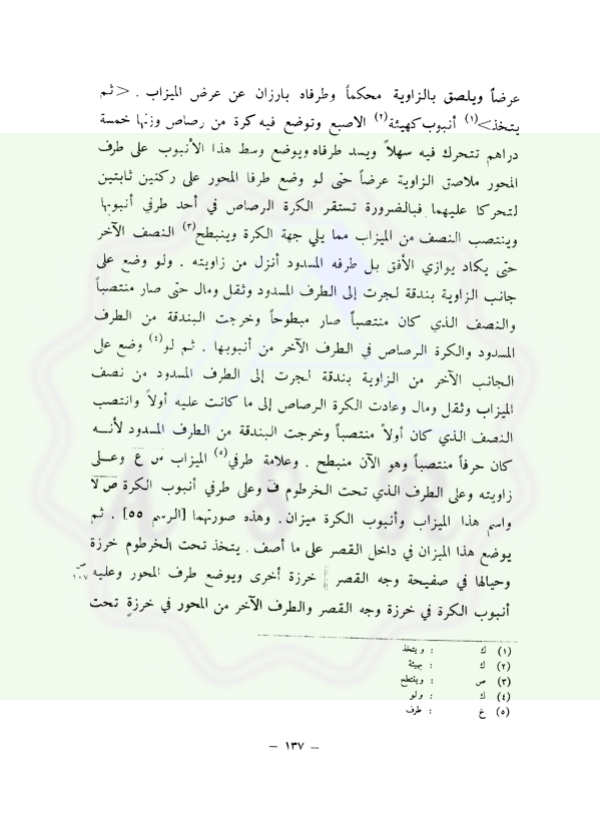 عرضاً ويلصق بالزاوية محكماً وطرفاه بارزان عن عرض الميزاب . <ثم
يتخذ>(١) أنبوب كهيئة(٢) الاصبع وتوضع فيه كرة من رصاص وزنها خمسة
دراهم تتحرك فيه سهلاً ويسد طرفاه ويوضع وسط هذا الأنبوب على طرف
المحور ملاصق الزاوية عرضاً حتى لو وضع طرفا المحور على ركنين ثابتين
لتحركا عليهما فبالضرورة تستقر الكرة الرصاص في أحد طرفي أنبوبها
وينتصب النصف من الميزاب مما يلي جهة الكرة وينبطح(٣) النصف الآخر
حتى يكاد يوازي الأفق بل طرفه المسدود أنزل من زاويته . ولو وضع على
جانب الزاوية بندقة لجرت إلى الطرف المسدود وثقل ومال حتى صار منتصباً
والنصف الذي كان منتصباً صار مبطوحاً وخرجت البندقة من الطرف
المسدود والكرة الرصاص في الطرف الآخر من أنبوبها . ثم لو(٤) وضع على
الجانب الآخر من الزاوية بندقة لجرت إلى الطرف المسدود من نصف
الميزاب وثقل ومال وعادت الكرة الرصاص إلى ما كانت عليه أولاً وانتصب
النصف الذي كان أولاً منتصباً وخرجت البندقة من الطرف المسدود لأنــه
كان حرفاً منتصباً وهو الآن منبطح . وعلامة طرفي(٥) الميزاب س ع وعــلى
زاويته وعلى الطرف الذي تحت الخرطوم ف وعلى طرفي أنبوب الكرة ص لا
واسم هذا الميزاب وأنبوب الكرة ميزان . وهذه صورتهما [الرسم ٥٥] . ثم
يوضع هذا الميزان في داخل القصر على ما أصف . يتخذ تحت الخرطوم خرزة
وحيالها في صفيحة وجه القصر خرزة أخرى ويوضع طرف المحور وعليه ص ٢٠٧
أنبوب الكرة في خرزة وجه القصر والطرف الآخر من المحور في خرزةٍ تحت
(١) ك : ويتخذ
(٢) ك : بهيئة
(٣) ص : وينتطح
(٤) ك : ولو
(٥) خ : طرف
– ١٣٧ –